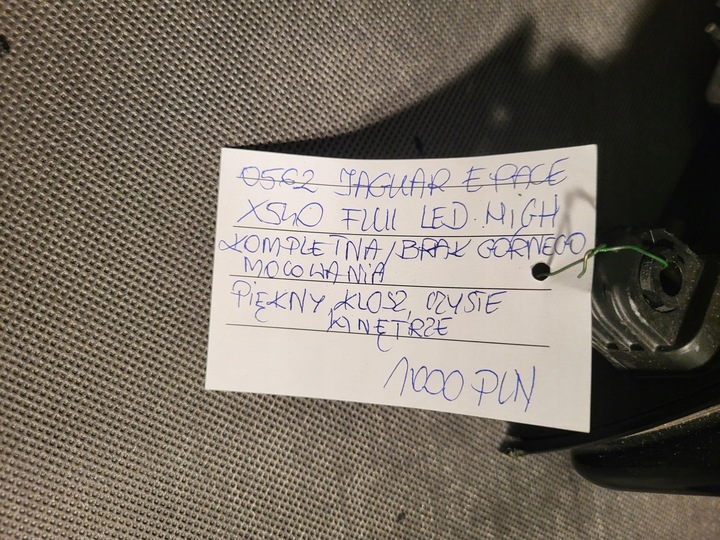 0562 JAGUAR E PACE
X540 FULL LED HIGH
KOMPLETNA/BRAK GÓRNEGO
MOCOWANIA
PIĘKNY, KLOSZ, CZYSTE
WNĘTRZE
1000 PLN